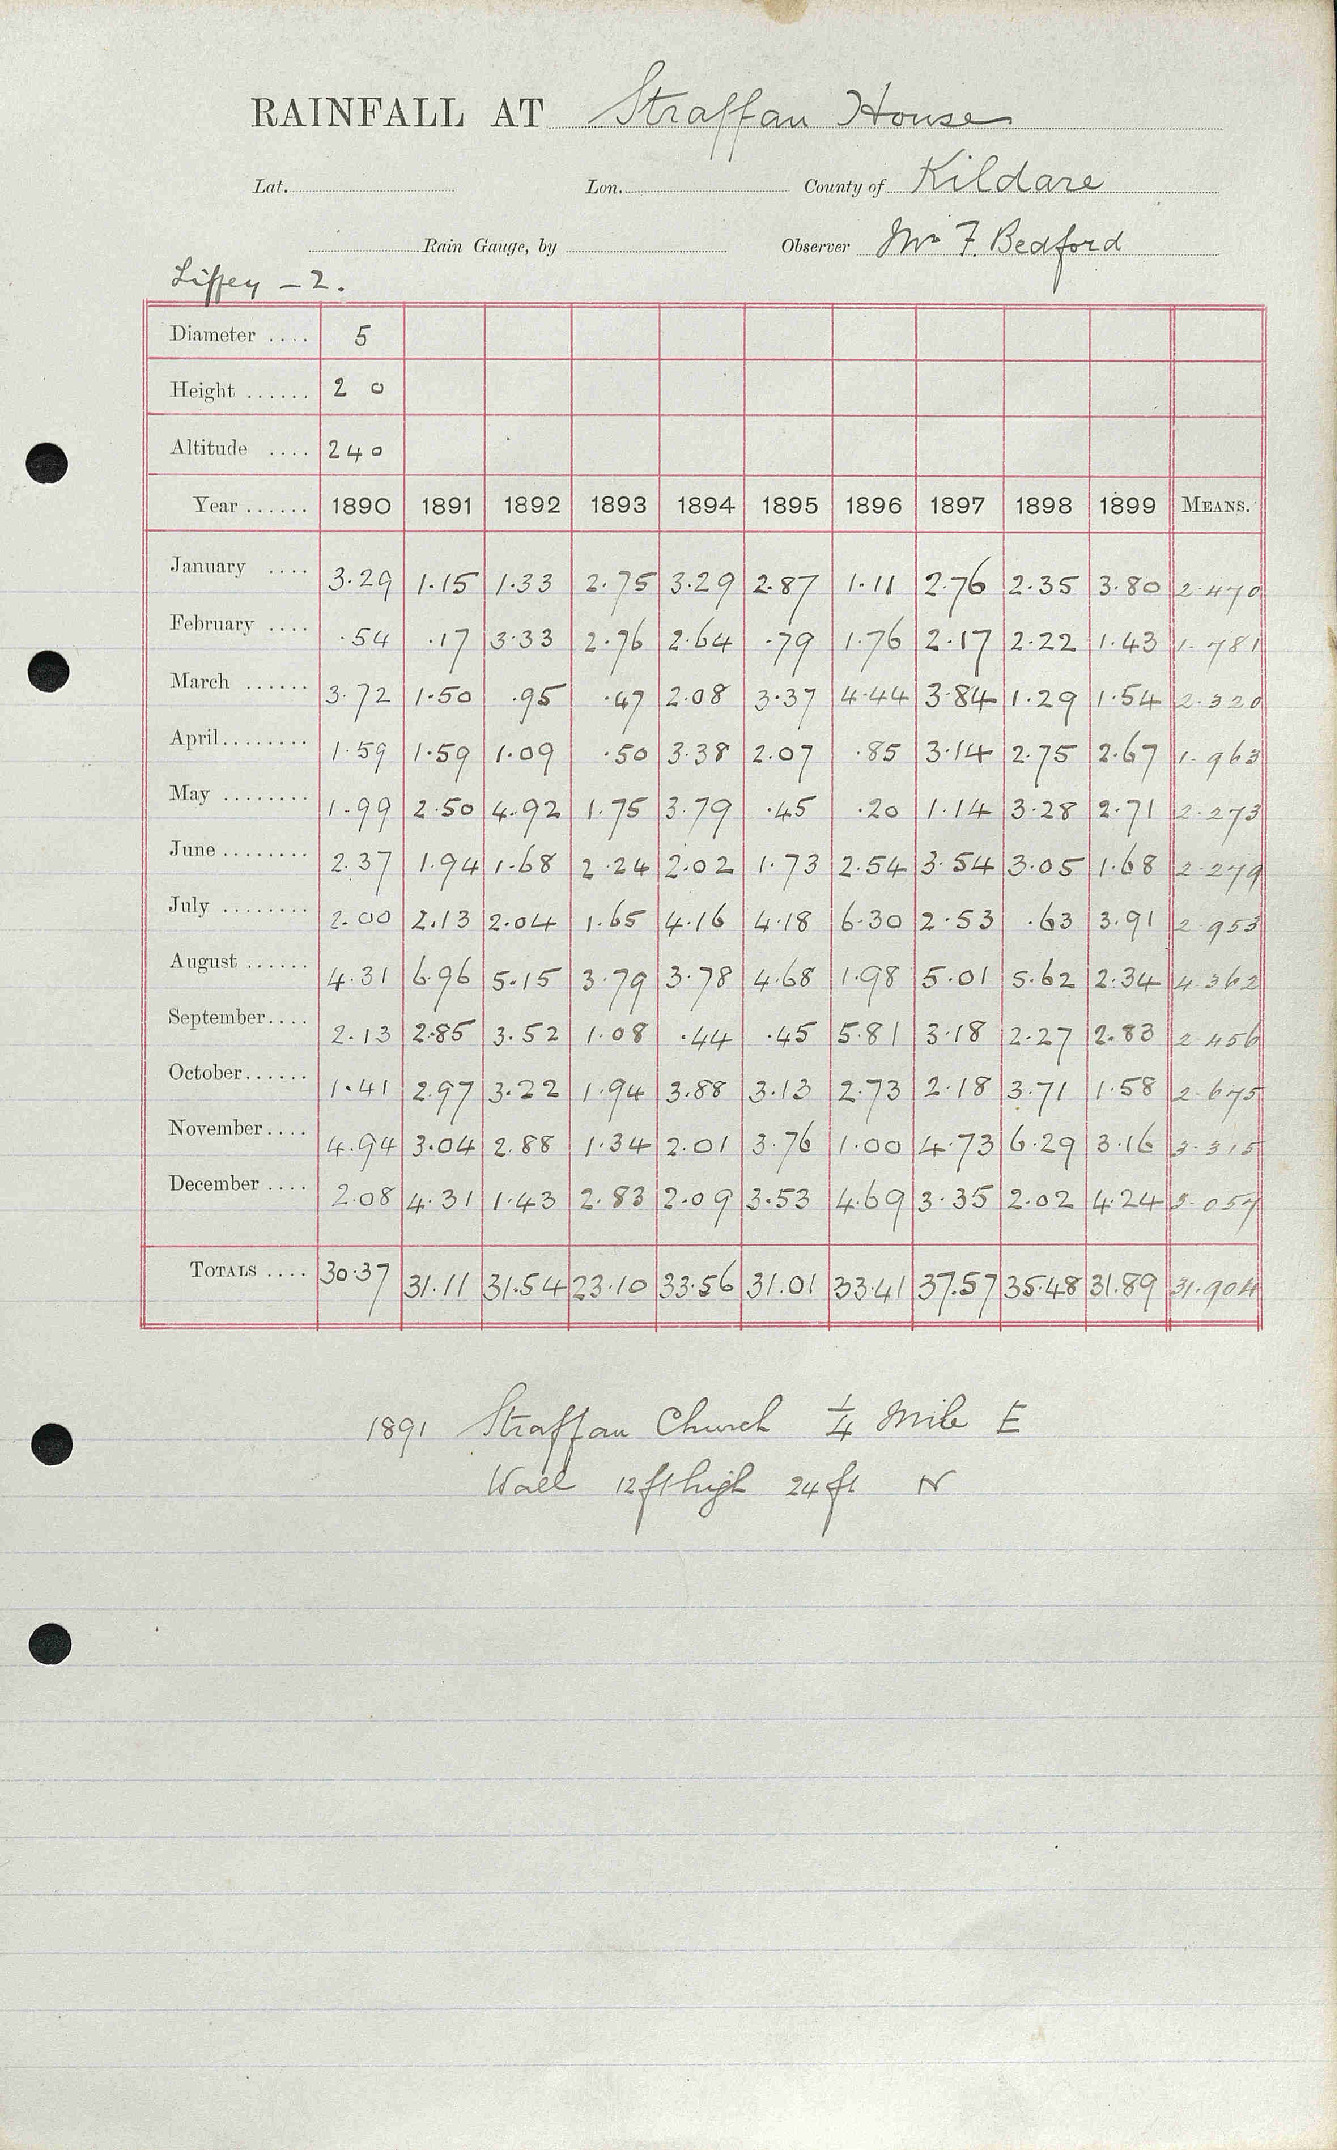 RAINFALL AT Straffan House
Lat. Lon. County of Kildare
Rain Gauge, by Observer Mr F. Bedford
Liffey - 2.
Diameter .... 5
Height ...... 2 0
Altitude .... 240
Year ...... 1890 1891 1892 1893 1894 1895 1896 1897 1898 1899 MEANS.
January .... 3.29 1.15 1.33 2.75 3.29 2.87 1.11 2.76 2.35 3.80 2.470
February .... .54 .17 3.33 2.76 2.64 .79 1.76 2.17 2.22 1.43 1.781
March ...... 3.72 1.50 .95 .47 2.08 3.37 4.44 3.84 1.29 1.54 2.320
April........ 1.59 1.59 1.09 .50 3.38 2.07 .85 3.14 2.75 2.67 1.963
May ........ 1.99 2.50 4.92 1.75 3.79 .45 .20 1.14 3.28 2.71 2.273
June ........ 2.37 1.94 1.68 2.24 2.02 1.73 2.54 3.54 3.05 1.68 2.279
July ........ 2.00 2.13 2.04 1.65 4.16 4.18 6.30 2.53 .63 3.91 2.953
August ...... 4.31 6.96 5.15 3.79 3.78 4.68 1.98 5.01 5.62 2.34 4.362
September.... 2.13 2.85 3.52 1.08 .44 .45 5.81 3.18 2.27 2.83 2.456
October...... 1.41 2.97 3.22 1.94 3.88 3.13 2.73 2.18 3.71 1.58 2.675
November.... 4.94 3.04 2.88 1.34 2.01 3.76 1.00 4.73 6.29 3.16 3.315
December .... 2.08 4.31 1.43 2.83 2.09 3.53 4.69 3.35 2.02 4.24 3.057
TOTALS .... 30.37 31.11 31.54 23.10 33.56 31.01 33.41 37.57 35.48 31.89 31.904
1891 Straffan Church 1/4 Mile E
Wall 12ft high 24ft N